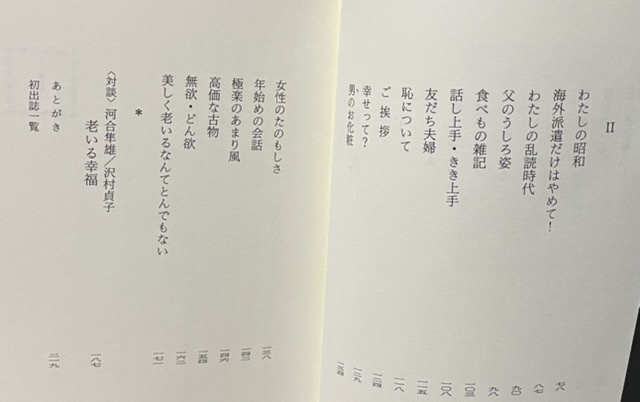 II
わたしの昭和 七八
海外派遣だけはやめて! 八七
わたしの乱読時代 九〇
父のうしろ姿 九八
食べもの雑記 一〇三
話し上手・きき上手 一〇八
友だち夫婦 一一五
恥について 一一八
ご挨拶 一二四
幸せって? 一二九
男のお化粧 一三四
女性のたのもしさ 一三八
年始めの会話 一四二
極楽のあまり風 一四六
高価な古物 一五四
無欲・どん欲 一六二
美しく老いるなんてとんでもない 一七一
*
〈対談〉河合隼雄/沢村貞子
老いる幸福 一八七
あとがき 二一九
初出誌一覧